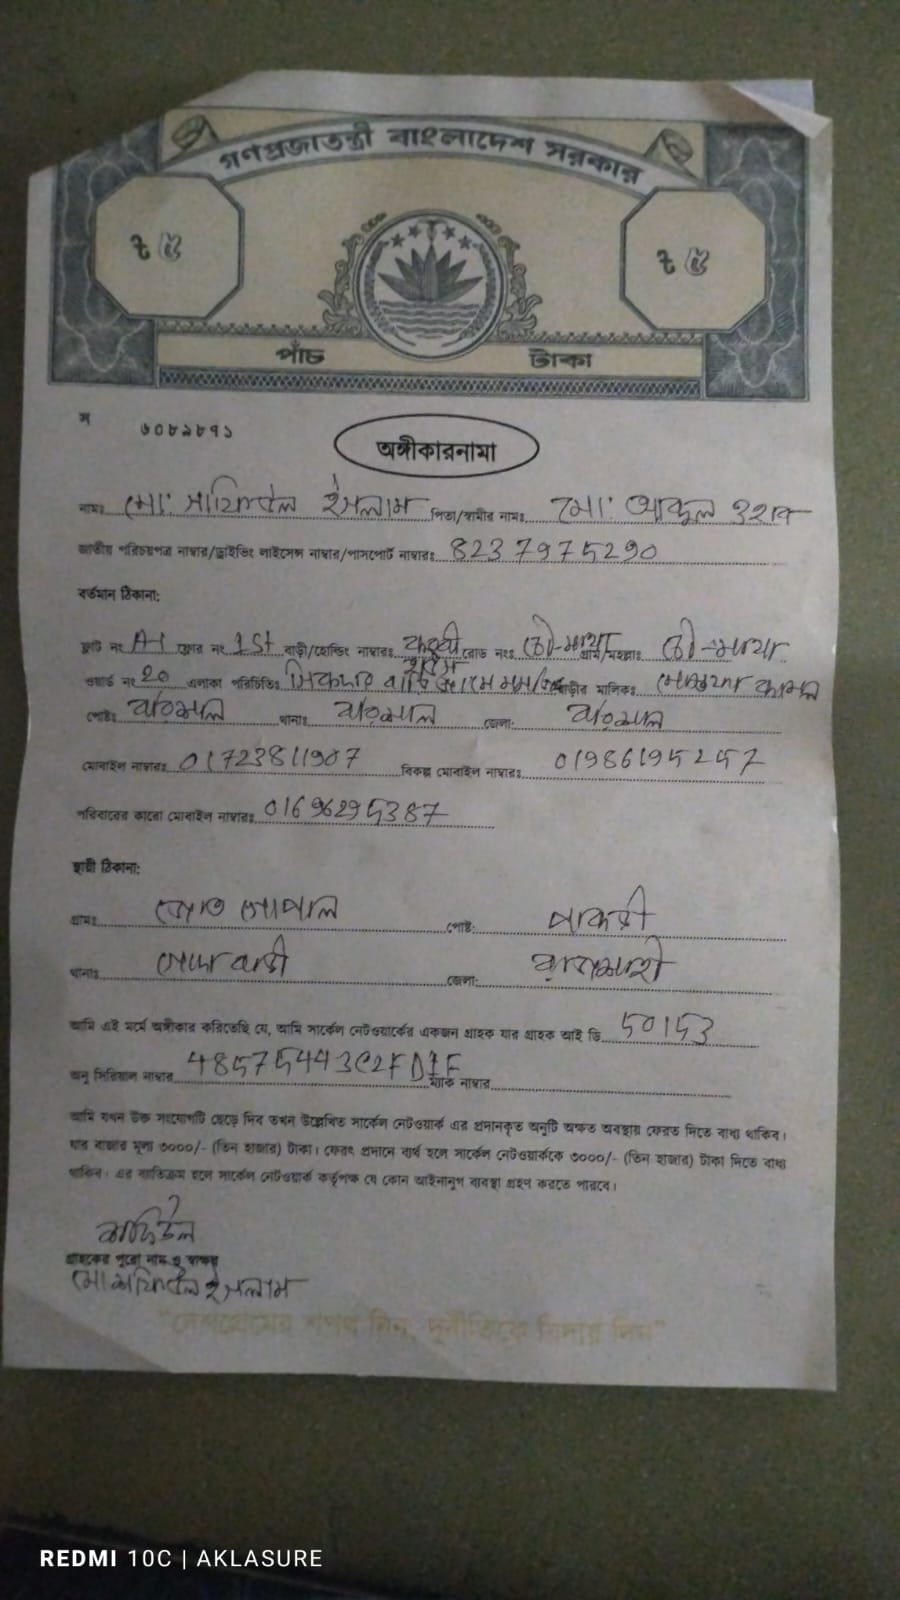 গণপ্রজাতন্ত্রী বাংলাদেশ সরকার
৳ ৫ ৳ ৫
পাঁচ টাকা
স ৬০৮৯৮৭১
অঙ্গীকারনামা
নামঃ মো: সাফিউল ইসলাম পিতা/স্বামীর নামঃ মো: আব্দুল ওহাব
জাতীয় পরিচয়পত্র নাম্বার/ড্রাইভিং লাইসেন্স নাম্বার/পাসপোর্ট নাম্বারঃ 8237975290
বর্তমান ঠিকানা:
ফ্লাট নং A-1 ফ্লোর নং 1st বাড়ী/হোল্ডিং নাম্বারঃ রোড নংঃ চৌ-মাথা গ্রাম/মহল্লাঃ চৌ-মাথা
ওয়ার্ড নং 20 এলাকা পরিচিতিঃ সিকদার বাড়ি বাড়ীর মালিকঃ মোস্তফা কামাল
পোষ্টঃ বরিশাল থানাঃ বরিশাল জেলা: বরিশাল
মোবাইল নাম্বারঃ 01723811907 বিকল্প মোবাইল নাম্বারঃ 01986195257
পরিবারের কারো মোবাইল নাম্বারঃ 01696295387
স্থায়ী ঠিকানা:
গ্রামঃ জোত গোপাল পোষ্ট: পাকড়ী
থানাঃ গোদাবাড়ী জেলা: রাজশাহী
আমি এই মর্মে অঙ্গীকার করিতেছি যে, আমি সার্কেল নেটওয়ার্কের একজন গ্রাহক যার গ্রাহক আই ডি 50153
অনু সিরিয়াল নাম্বার 48575443C2FD1F ম্যাক নাম্বার
আমি যখন উক্ত সংযোগটি ছেড়ে দিব তখন উল্লেখিত সার্কেল নেটওয়ার্ক এর প্রদানকৃত অনুটি অক্ষত অবস্থায় ফেরত দিতে বাধ্য থাকিব।
যার বাজার মূল্য ৩০০০/- (তিন হাজার) টাকা। ফেরৎ প্রদানে ব্যর্থ হলে সার্কেল নেটওয়ার্ককে ৩০০০/- (তিন হাজার) টাকা দিতে বাধ্য
থাকিব। এর ব্যতিক্রম হলে সার্কেল নেটওয়ার্ক কর্তৃপক্ষ যে কোন আইনানুগ ব্যবস্থা গ্রহণ করতে পারবে।
গ্রাহকের পুরো নাম ও স্বাক্ষর
মো: সাফিউল ইসলাম
"দেশপ্রেমের শপথ নিন, দুর্নীতিকে বিদায় দিন"
REDMI 10C | AKLASURE